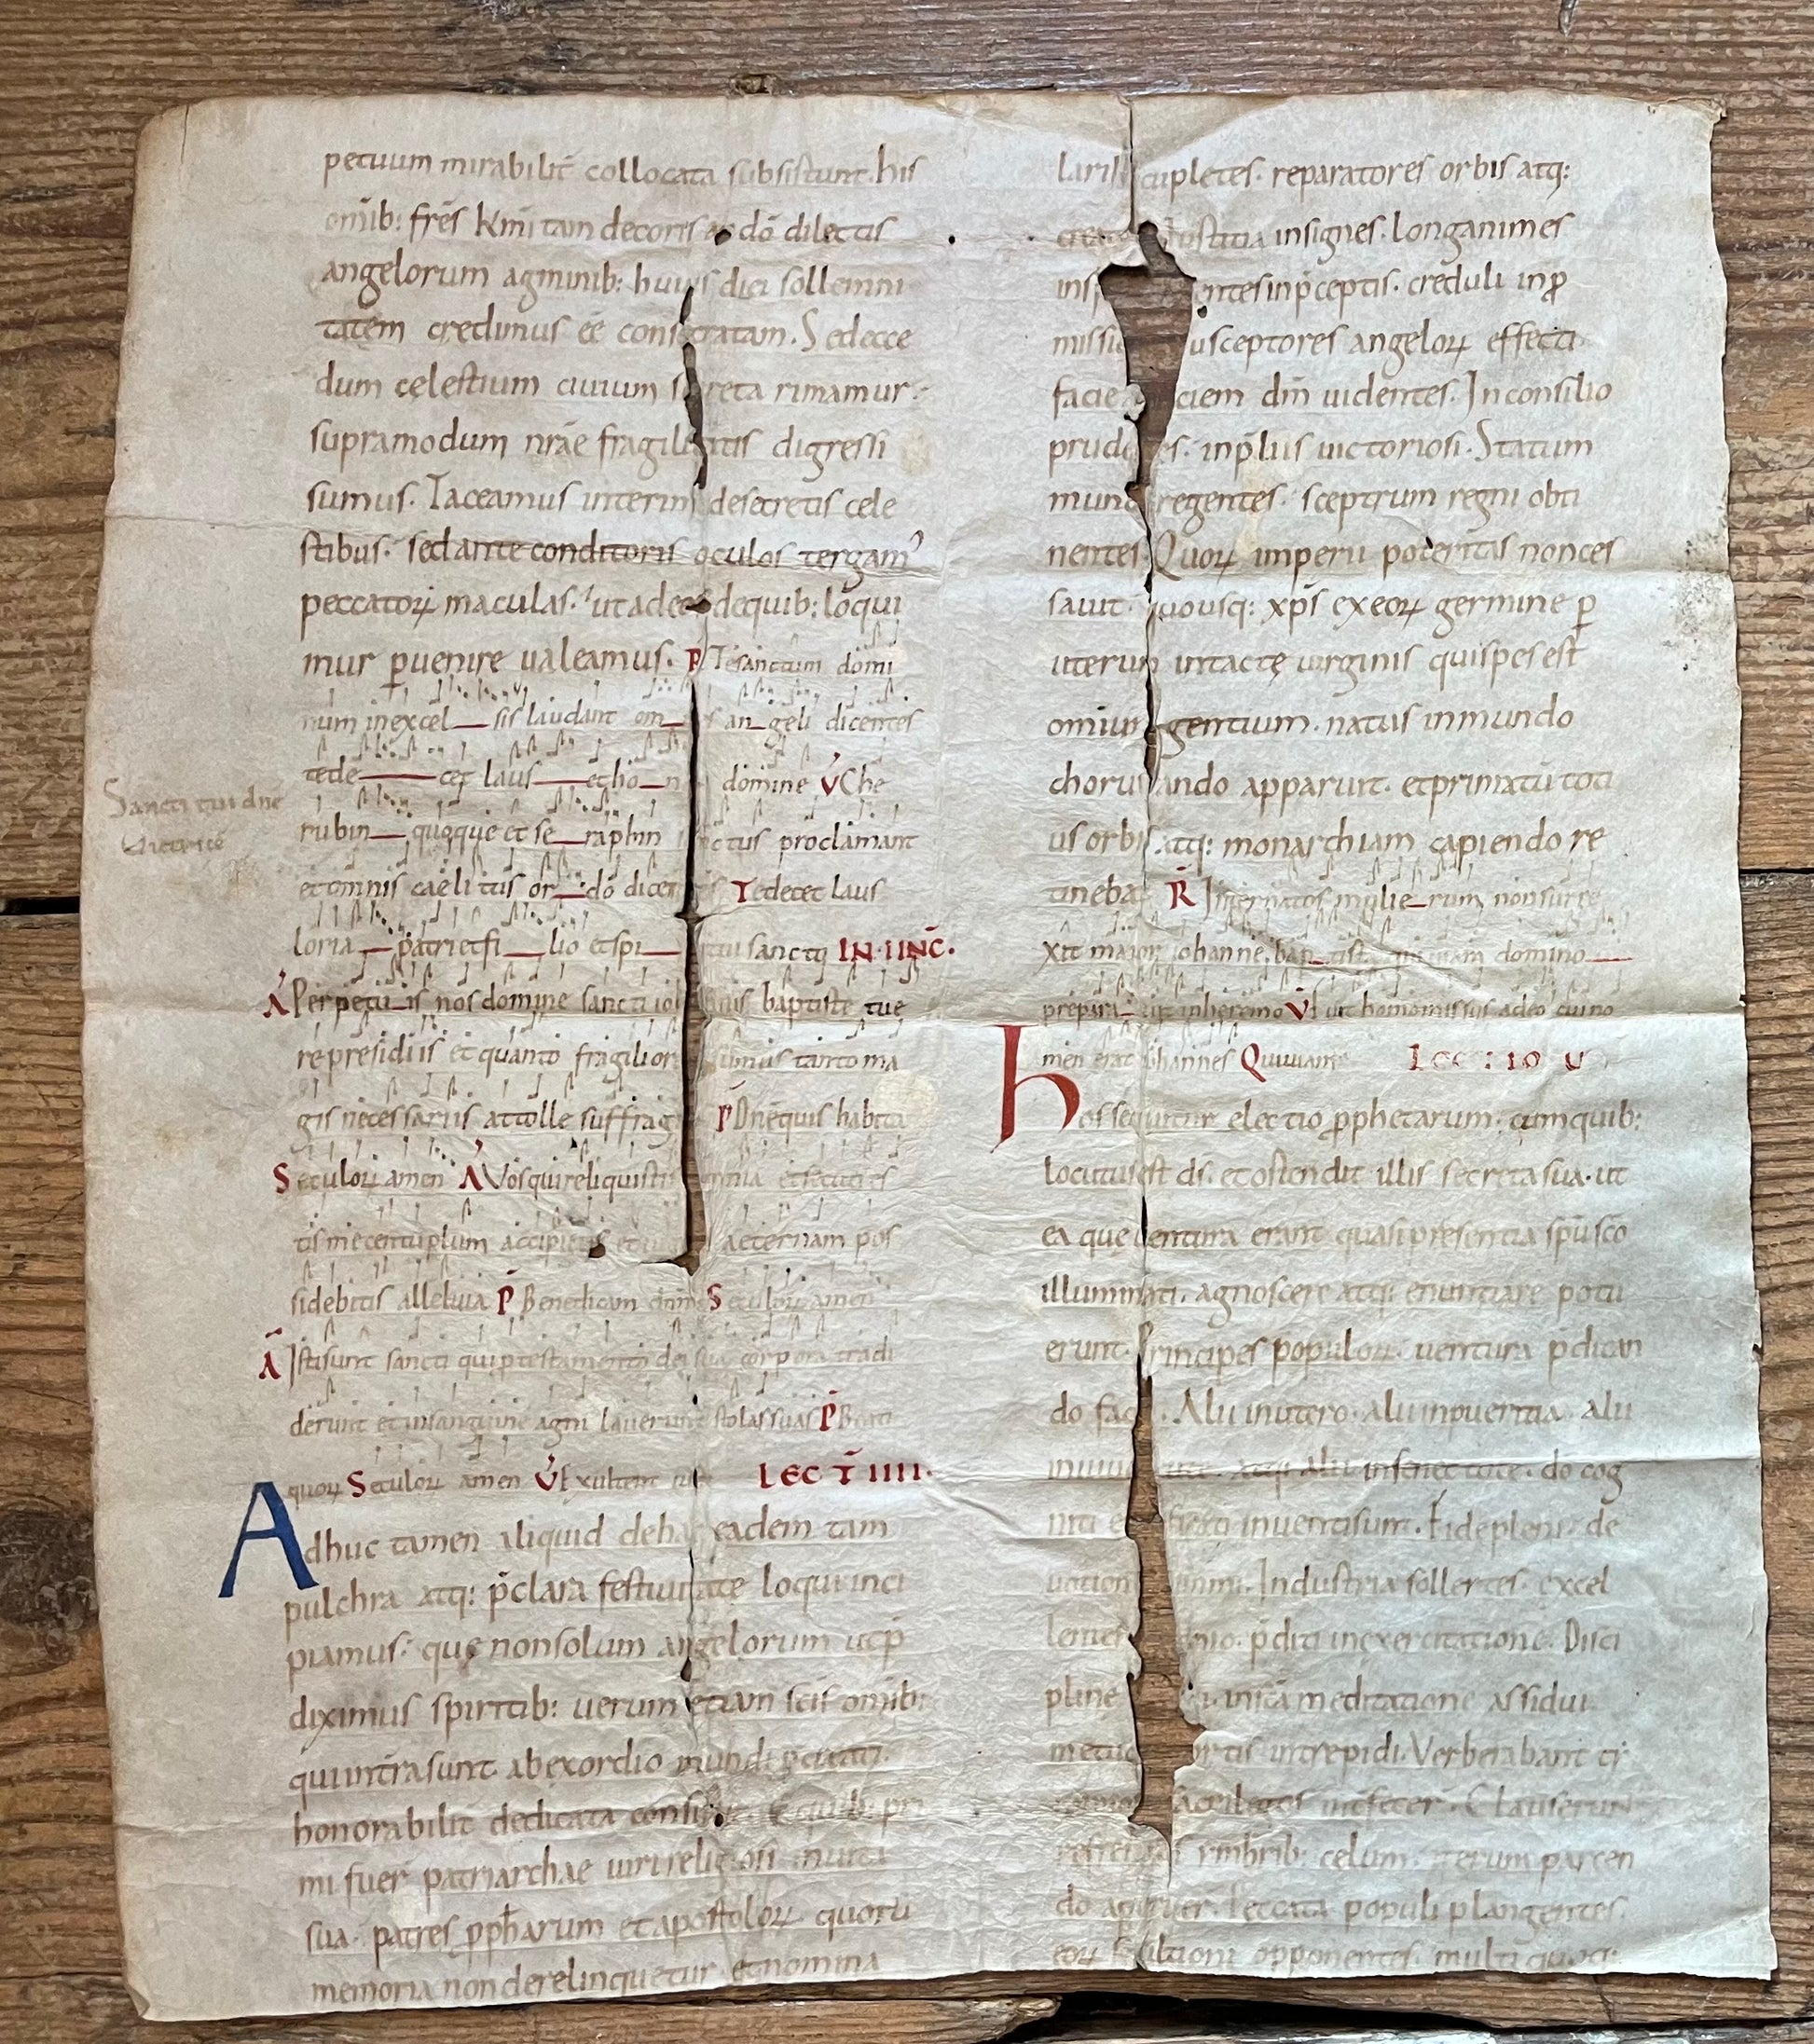 petuum mirabilit̄ collocata subsistunt. his
om̄ib: fr̄es km̄i tam decoris ac dō dilectis
angelorum agminib: huius diei sollemni
tatem credimus eē consecratam. Sed ecce
dum cęlestium ciuium secreta rimamur.
supra modum nr̄ae fragilitatis digressi
sumus. Taceamus interim de secretis cele
stibus. sed ante conditoris oculos tergam᾽
peccatoꝝ maculas. ut ad ea dequib: loqui
mur ꝑuenire ualeamus. R̄ Te sanctum domi
num in excel sis laudant om an geli dicentes
te de cet laus et ho n domine V̄ Che
rubin quoque et se raphin ctus proclamant
Sancti tui dn̄e
et omnis caeli tus or do dicen s Te decet laus
loria patri et fi lio et spi tui sancto IN · II NC̄.
Ā Perpetu is nos domine sancti ioh nis baptiste tue
re presidiis et quanto fragilior sumus tanto ma
gis necessariis attolle suffrag P̄ Dn̄e quis habita
Seculoꝝ amen Ā Vos qui reliquistis omnia et secuti es
tis me centuplum accipietis et ui aeternam pos
sidebitis alleluia P̄ Benedicam Seculoꝝ amen
Ā Isti sunt sancti qui ꝓ testamento dei sua corpora tradi
derunt et in sanguine agni lauerunt stolas suas P̄ Beati
quoꝝ Seculoꝝ amen V̄ Exultent iust LEC T̄ IIII.
Adhuc tamen aliquid de hac eadem tam
pulchra atq: p̄clara festiuitate loqui inci
piamus. quę non solum angelorum ut p̄
diximus spiritib: uerum etiam sc̄is om̄ib:
qui intra sunt ab exordio mundi
honorabilit̄ dedicata consistit. E quib: pri
mi fuer̄ patriarchae uiri religiosi
sua. patres ꝓph̄arum et apostoloꝝ quoru
memoria non derelinquetur et nomina
cupletes. reparatores orbis atq:
iustitia insignes. longanimes
entes in p̄ceptis. creduli in ꝓ
missi usceptores angeloꝝ effecti
facie ciem dn̄i uidentes. In consilio
prude es. in p̄liis uictoriosi. Statum
mund regentes. sceptrum regni obti
nentes. Quoꝝ imperii posteritas non ces
sauit. quousq: xp̄s ex eoꝝ germine ꝑ
uterum intactę uirginis qui spes est
omium gentium. natus in mundo
chorus ando apparuit. et primatū toti
us orbis. atq: monarchiam capiendo re
tineba R̄ Inter natos mulie rum non surre
xit maior iohanne bap tista qui uiam domino
prepara uit in heremo V̄ Fuit homo missus a deo cui no
men erat iohannes Qui uiam LECTIO V
hos sequitur electio ꝓphetarum. cum quib:
locutus est ds̄. et ostendit illis secreta sua. ut
ea que uentura erant quasi presentia spū sc̄o
illuminati. agnoscere atq: enuntiare potu
erunt. Principes populoꝝ uentura p̄dican
do fac . Alii in utero. alii in pueritia. alii
in iuu ute. atq: alii in senectute. do cog
niti e fecti inuenti sunt. Fide pleni. de
uotion simi. Industria sollertes. excel
lentes nio. p̄diti in exercitatione. Disci
pline in sc̄a meditatione assidui.
metuo rtis intrepidi. Verberabant ti
sacrilegos Clauserunt
imbrib: celum. iterum parcen
do aperuer̄. Peccata populi plangentes.
eoꝝ opponentes. multi quoq: